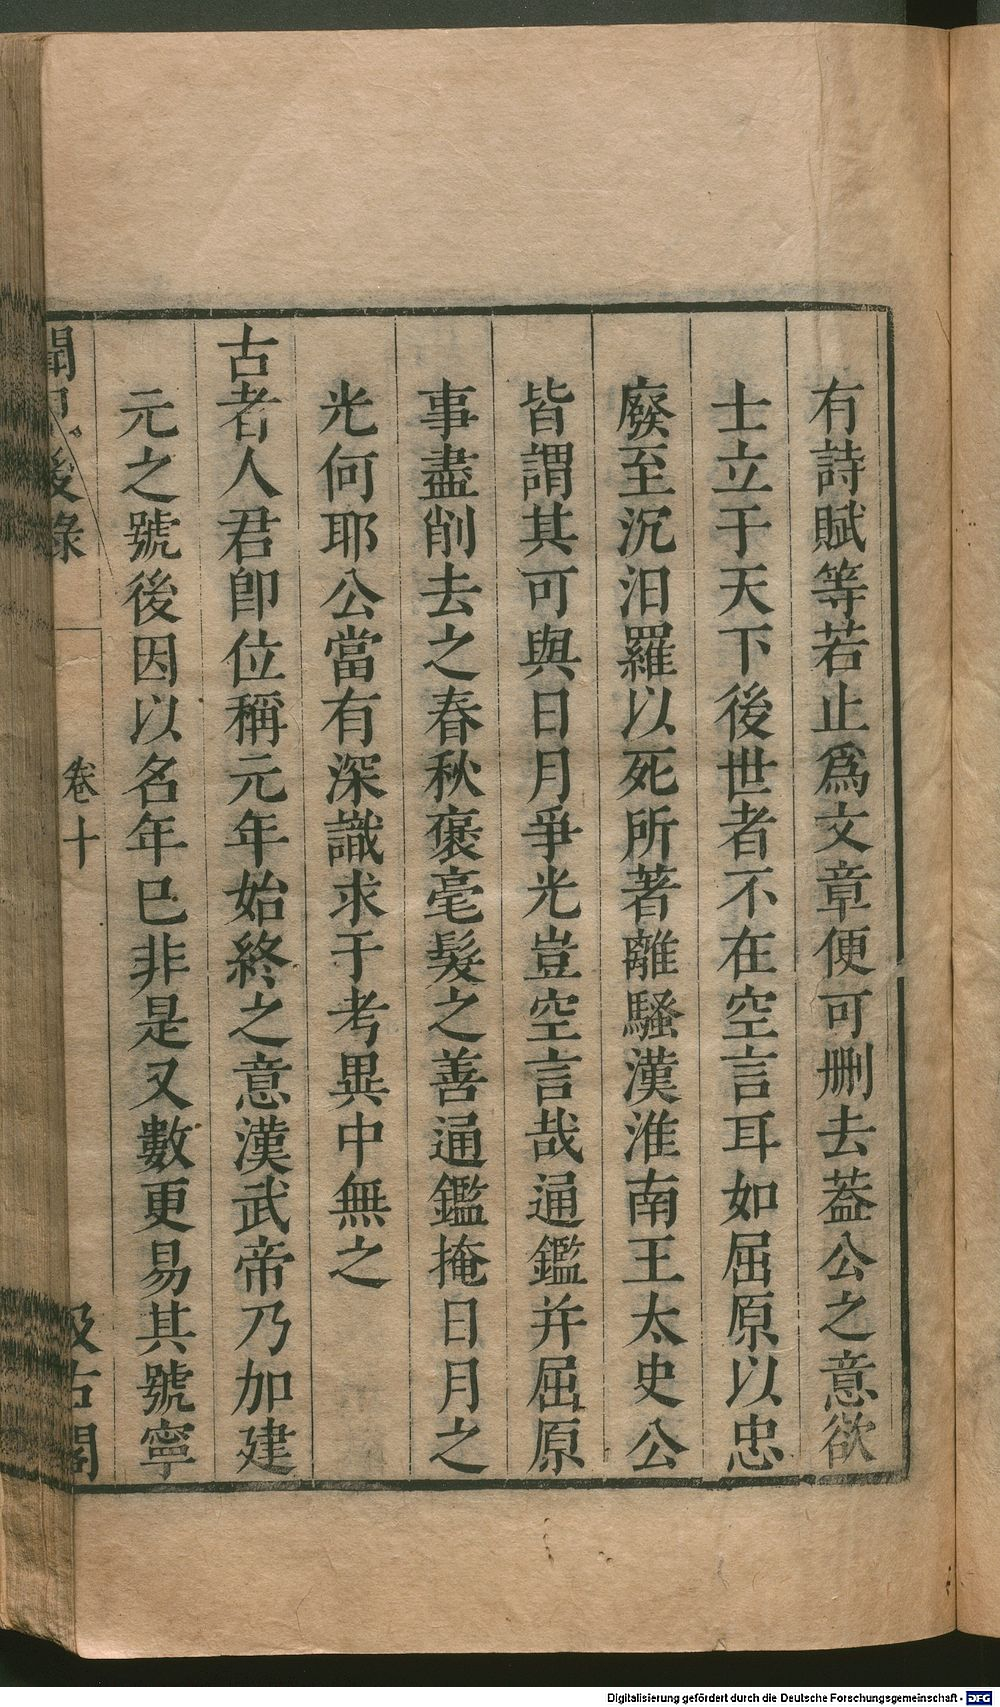 有詩賦等若止爲文章便可刪去葢公之意欲
士立于天下後世者不在空言耳如屈原以忠
廢至沉汨羅以死所著離騷漢淮南王太史公
皆謂其可與日月爭光豈空言哉通鑑并屈原
事盡削去之春秋褒毫髮之善通鑑掩日月之
光何耶公當有深識求于考異中無之
古者人君卽位稱元年始終之意漢武帝乃加建
元之號後因以名年巳非是又數更易其號寧
聞見後錄
卷十
汲古閣
Digitalisierung gefördert durch die Deutsche Forschungsgemeinschaft - DFG